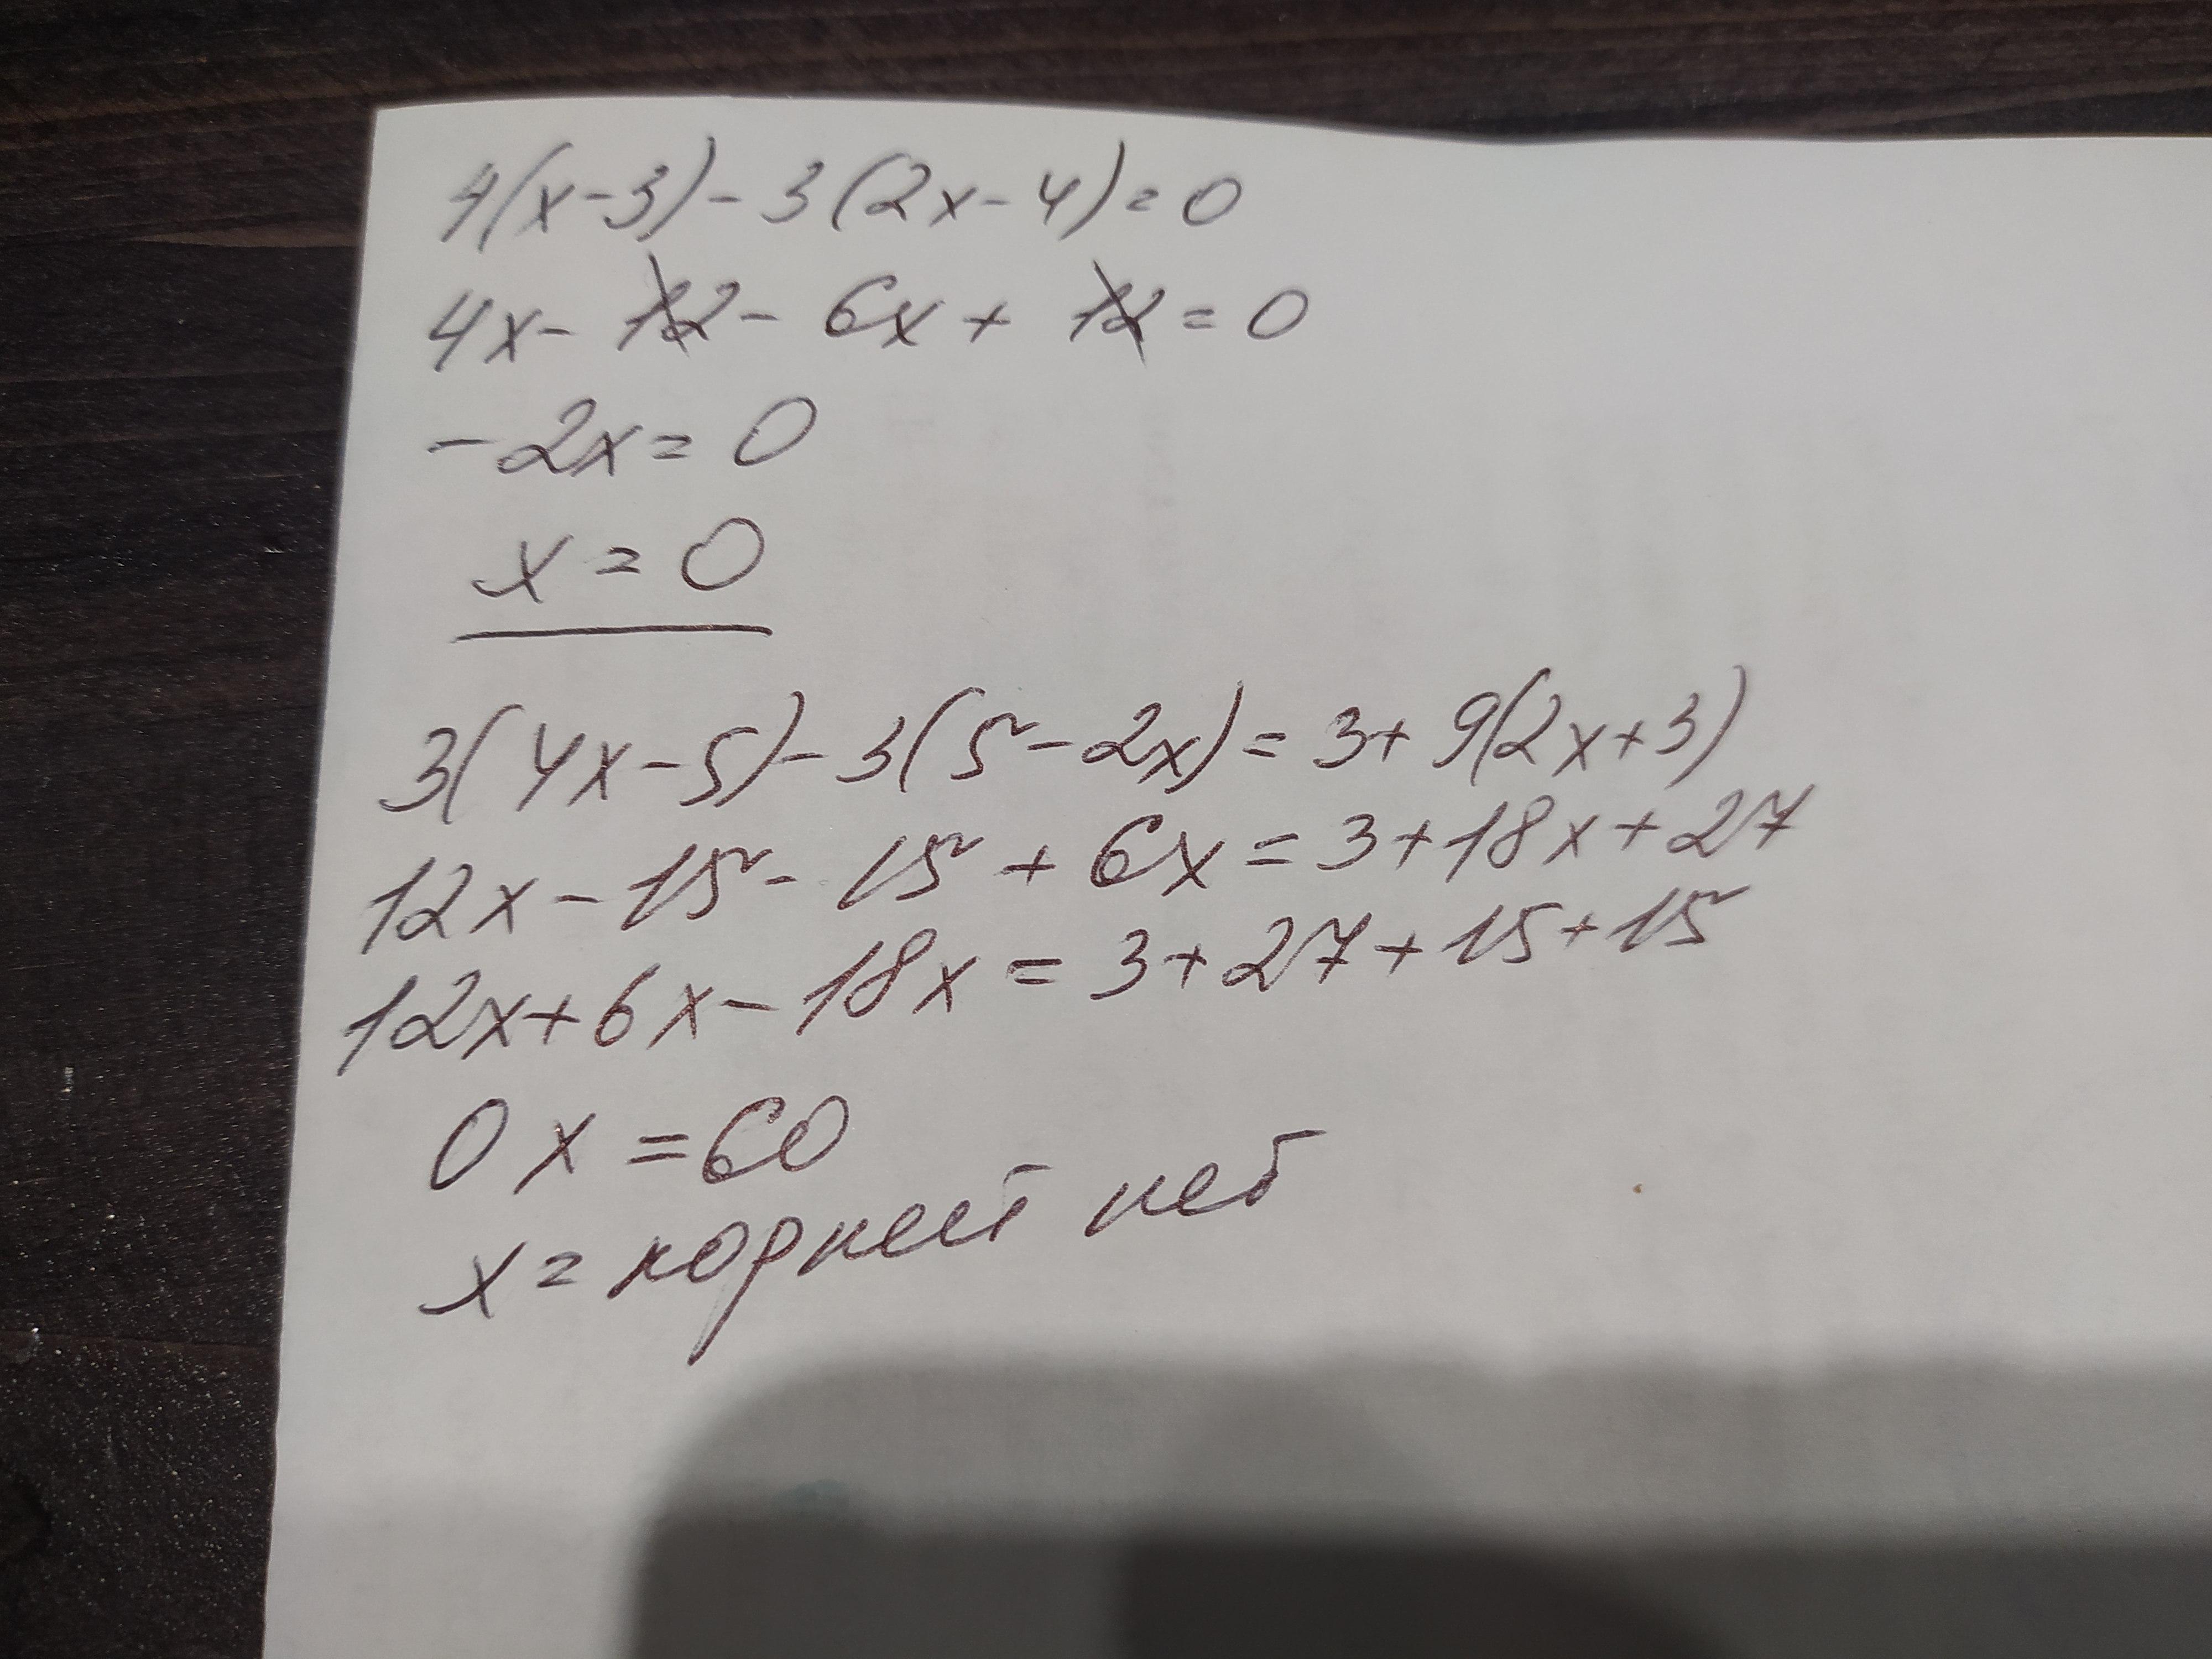 4(x-3)-3(2x-4)=0
4x-12-6x+12=0
-2x=0
x=0
3(4x-5)-3(5-2x)=3+9(2x+3)
12x-15-15+6x=3+18x+27
12x+6x-18x=3+27+15+15
0x=60
x=корней нет